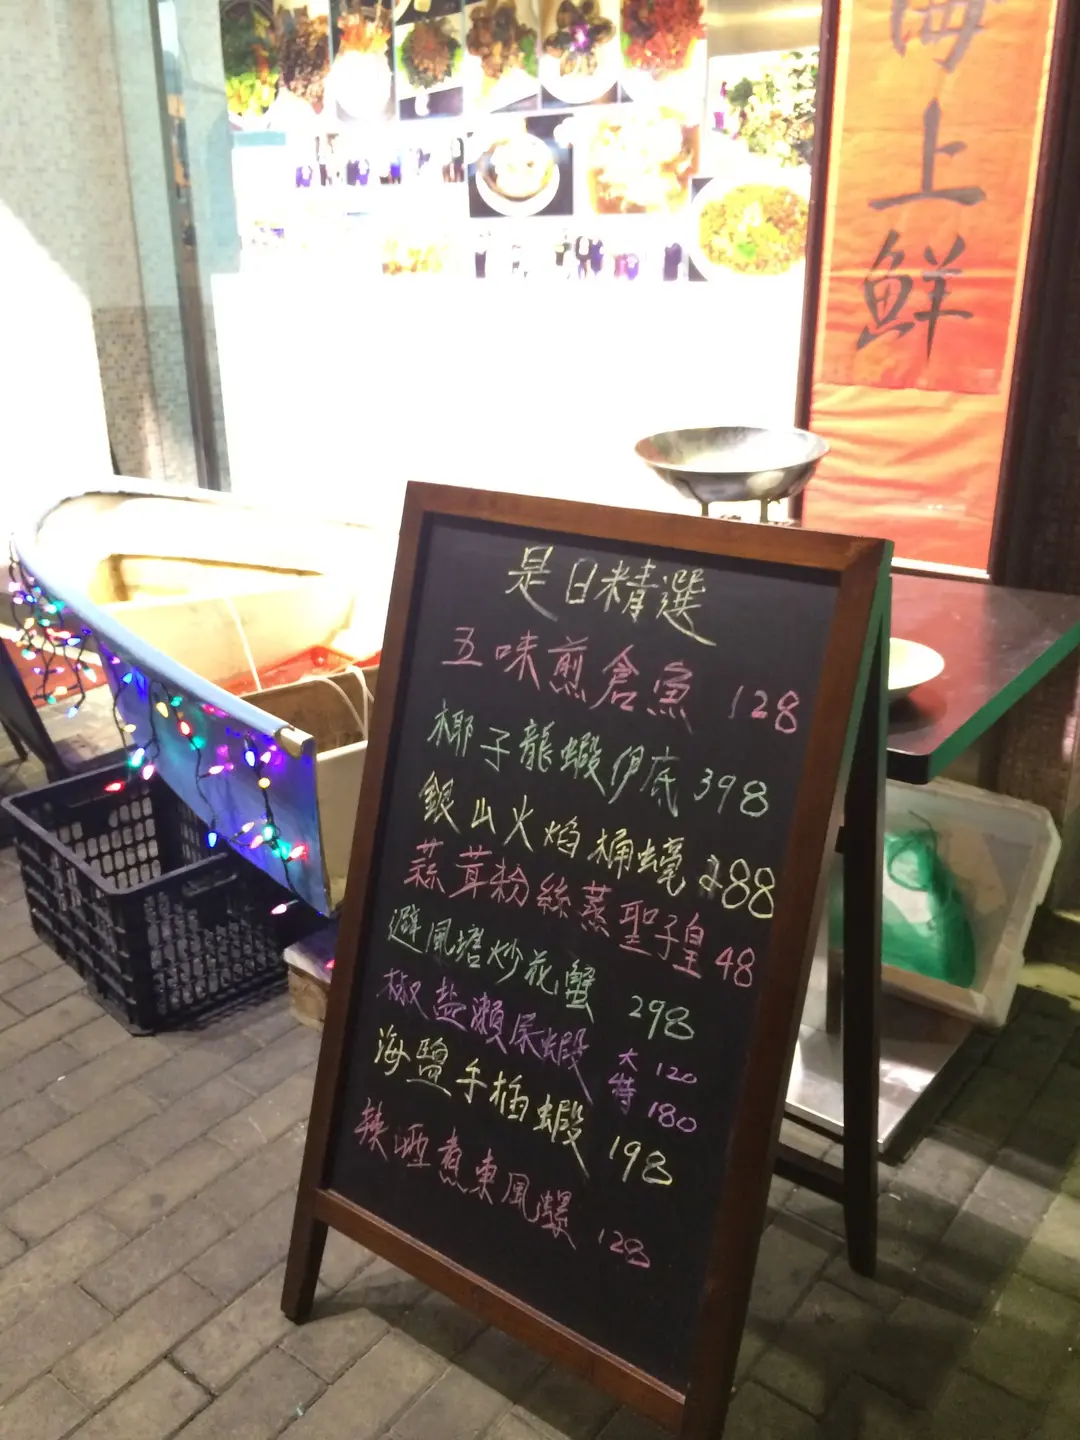 海
上
鮮
是日精選
五味煎倉魚 128
椰子龍蝦伊底 398
銀山火焰桶蠔 288
蒜茸粉絲蒸聖子皇 48
避風塘炒花蟹 298
椒盐瀨尿蝦 大 120
特 180
海鹽手插蝦 198
辣酒煮東風螺 128